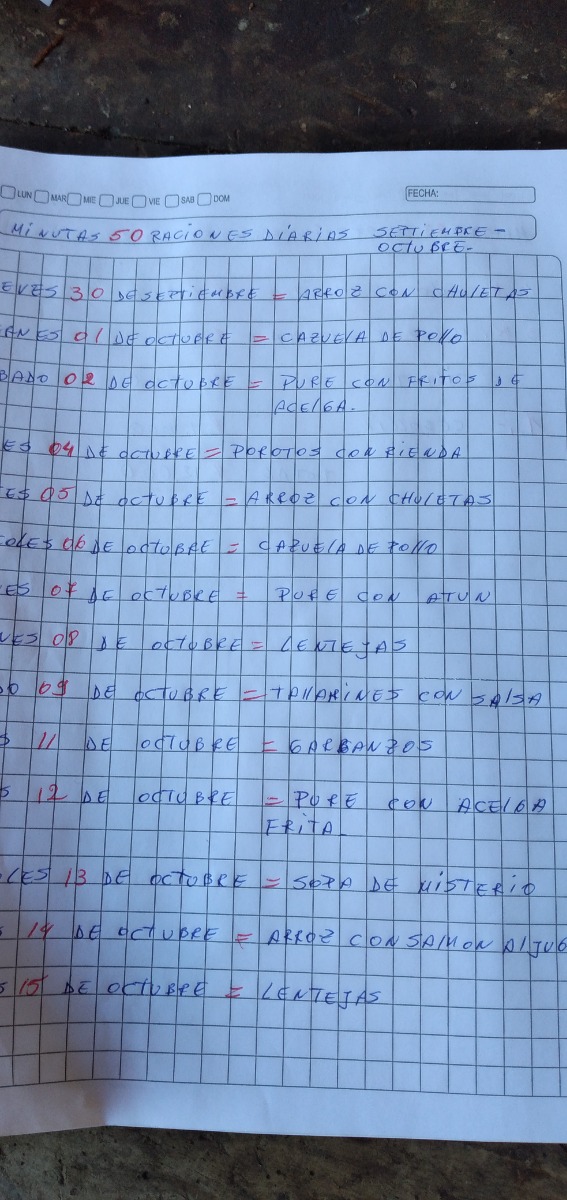 LUN MAR MIE JUE VIE SAB DOM FECHA:
MINUTAS 50 RACIONES DIARIAS SETTIEMBRE -
OCTUBRE -
EVES 30 DE SETTIEMBRE = ARROZ CON CHULETAS
ANES 01 DE OCTUBRE = CAZUELA DE POLLO
BADO 02 DE OCTUBRE = PURE CON FRITOS DE
ACELGA.
ES 04 DE OCTUBRE = POROTOS CON RIENDA
ES 05 DE OCTUBRE = ARROZ CON CHULETAS
OLES 06 DE OCTUBRE = CAZUELA DE POLLO
ES 07 DE OCTUBRE = PURE CON ATUN
NES 08 DE OCTUBRE = LENTEJAS
DO 09 DE OCTUBRE = TALLARINES CON SALSA
S 11 DE OCTUBRE = GARBANZOS
S 12 DE OCTUBRE = PURE CON ACELGA
FRITA -
LES 13 DE OCTUBRE = SOPA DE MISTERIO
S 14 DE OCTUBRE = ARROZ CON SALMON AL JUG
S 15 DE OCTUBRE = LENTEJAS